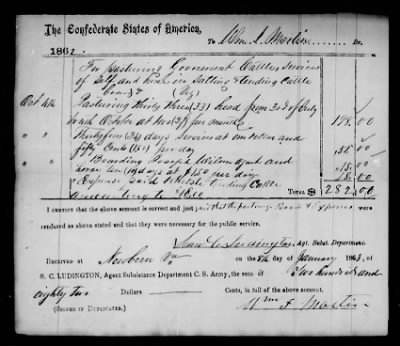 The Confederate States of America,
1862. To Wm. F. Martin Dr.
For pasturing Government Cattle, Services
of Self and in Salting & tending Cattle
Oct 4th Pasturing thirty three (33) head from 3rd of July
until October at per month 198.00
" " Thirty four (34) days Services at one dollar and
fifty Cents (1.50) per day
" " Boarding agent and
horse ten (10) days at $1.50 per day 15.00
" " Expense tending Cattle
Total $ 282.00
I certify that the above account is correct and just; that the pasturage Board & Expenses were
rendered as above stated and that they were necessary for the public service.
Sam C Ludington, Agt. Subst. Department.
Received at Newbern Va on the 8th day of January 1863, of
S. C. LUDINGTON, Agent Subsistence Department C. S. Army, the sum of Two hundred and
eighty two Dollars Cents, in full of the above account.
(SIGNED IN DUPLICATE.) Wm F Martin